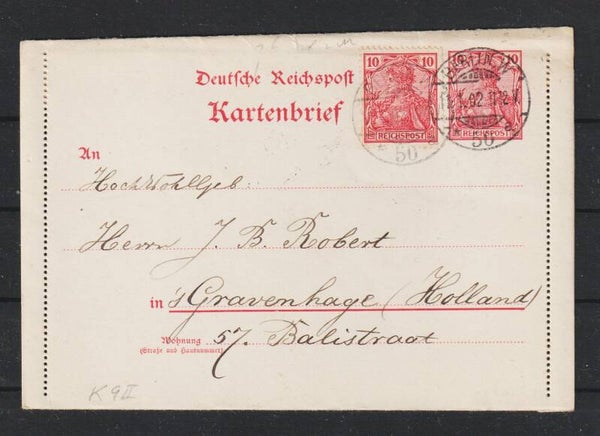 10 10
REICHSPOST
10
REICHSPOST
BERLIN. W.
50
50
Deutsche Reichspost
Kartenbrief
An
Hochwohlgeb:
Herrn J. B. Robert
in 's Gravenhage (Holland)
Wohnung 57. Balistraat
(Straße und Hausnummer)
K 9 II